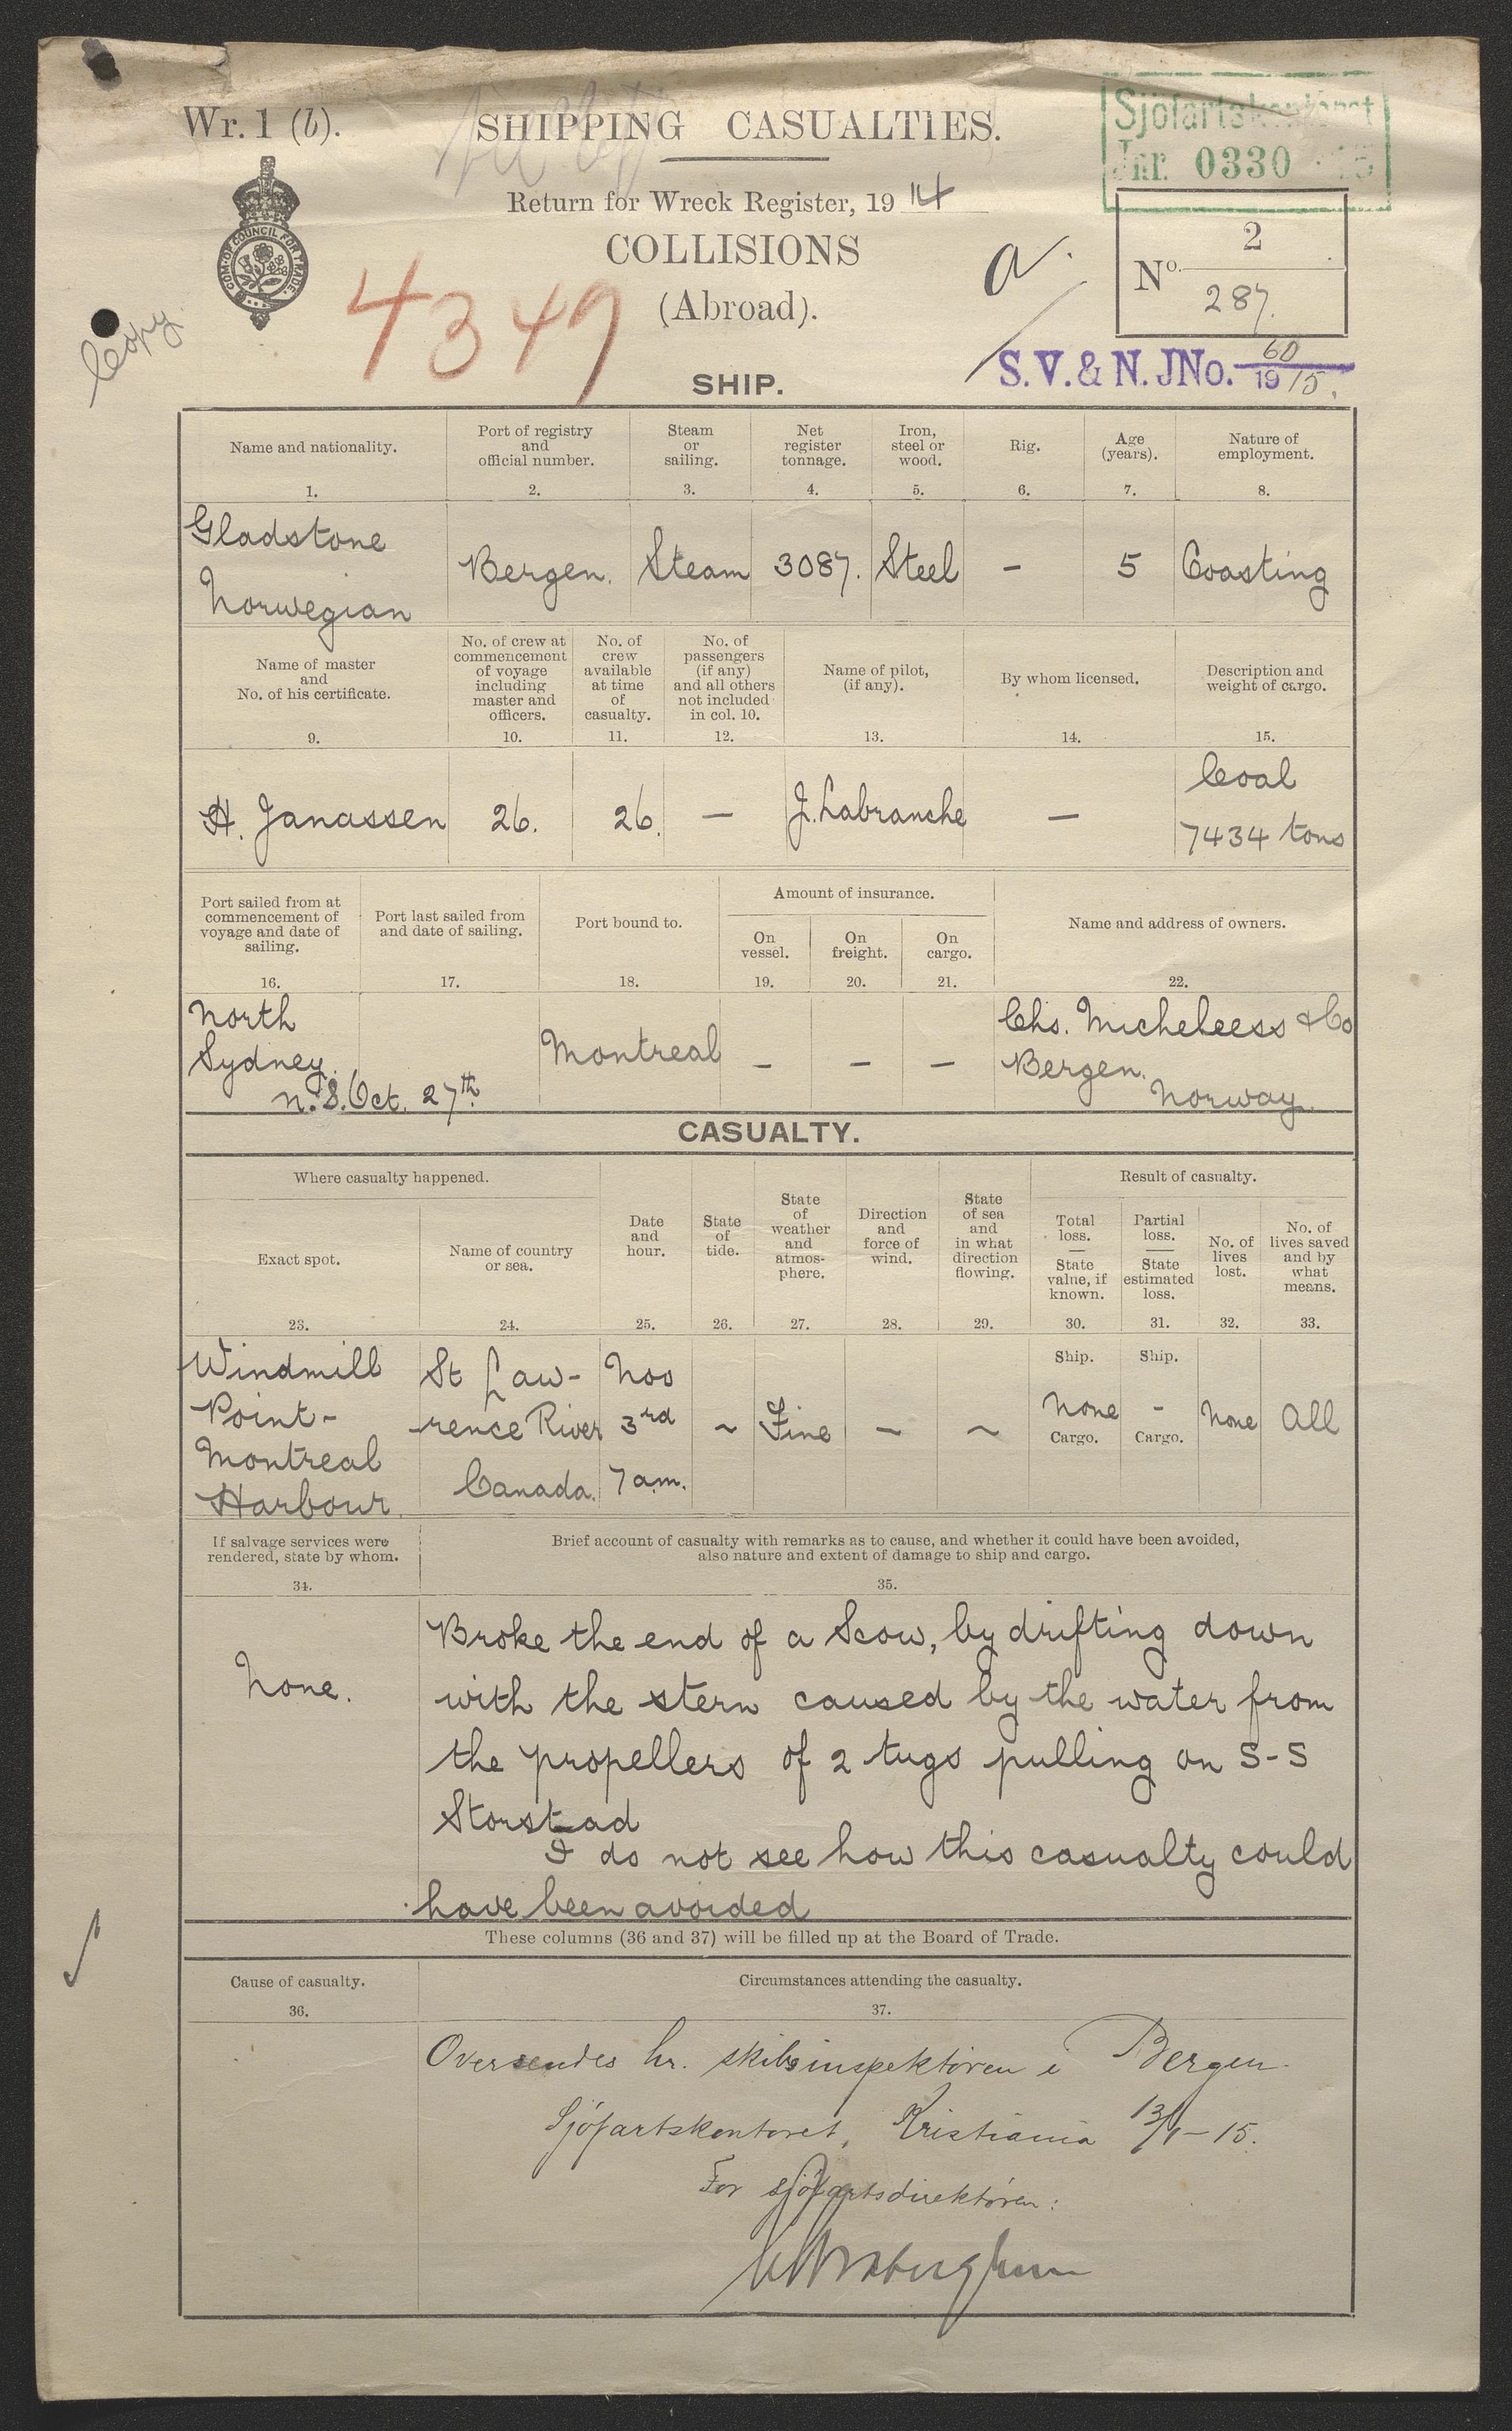 Wr. 1 (b).
SHIPPING CASUALTIES.
Sjöfartskontoret
Jnr. 0330 15
Return for Wreck Register, 1914
COLLISIONS
(Abroad).
COM. OF COUNCIL FOR TRADE.
a.
No. 2
287.
4349
Copy
S.V. & N. JNo. 60
1915.
SHIP.
Name and nationality.
1.
Port of registry
and
official number.
2.
Steam
or
sailing.
3.
Net
register
tonnage.
4.
Iron,
steel or
wood.
5.
Rig.
6.
Age
(years).
7.
Nature of
employment.
8.
Gladstone
Norwegian
Bergen.
Steam
3087.
Steel
-
5
Coasting
Name of master
and
No. of his certificate.
9.
No. of crew at
commencement
of voyage
including
master and
officers.
10.
No. of
crew
available
at time
of
casualty.
11.
No. of
passengers
(if any)
and all others
not included
in col. 10.
12.
Name of pilot,
(if any).
13.
By whom licensed.
14.
Description and
weight of cargo.
15.
H. Janassen
26.
26.
-
J. Labranche
-
Coal
7434 tons
Port sailed from at
commencement of
voyage and date of
sailing.
16.
Port last sailed from
and date of sailing.
17.
Port bound to.
18.
Amount of insurance.
On
vessel.
19.
On
freight.
20.
On
cargo.
21.
Name and address of owners.
22.
North
Sydney
N.S. Oct. 27th.
Montreal
-
-
-
Chs. Micheleess & Co
Bergen.
Norway.
CASUALTY.
Where casualty happened.
Exact spot.
23.
Name of country
or sea.
24.
Date
and
hour.
25.
State
of
tide.
26.
State
of
weather
and
atmos-
phere.
27.
Direction
and
force of
wind.
28.
State
of sea
and
in what
direction
flowing.
29.
Result of casualty.
Total
loss.
State
value, if
known.
30.
Partial
loss.
State
estimated
loss.
31.
No. of
lives
lost.
32.
No. of
lives saved
and by
what
means.
33.
Windmill
Point-
Montreal
Harbour.
St Law-
rence River
Canada.
Nov
3rd
7 a.m.
~
Fine
~
~
Ship.
None
Cargo.
Ship.
-
Cargo.
None
All
If salvage services were
rendered, state by whom.
34.
Brief account of casualty with remarks as to cause, and whether it could have been avoided,
also nature and extent of damage to ship and cargo.
35.
None.
Broke the end of a Scow, by drifting down
with the stern caused by the water from
the propellers of 2 tugs pulling on S-S
Storstad
I do not see how this casualty could
have been avoided
These columns (36 and 37) will be filled up at the Board of Trade.
Cause of casualty.
36.
Circumstances attending the casualty.
37.
Oversendes hr. skibsinspektören i Bergen.
Sjöfartskontoret, Kristiania 13/1-15.
For sjöfartsdirektören: